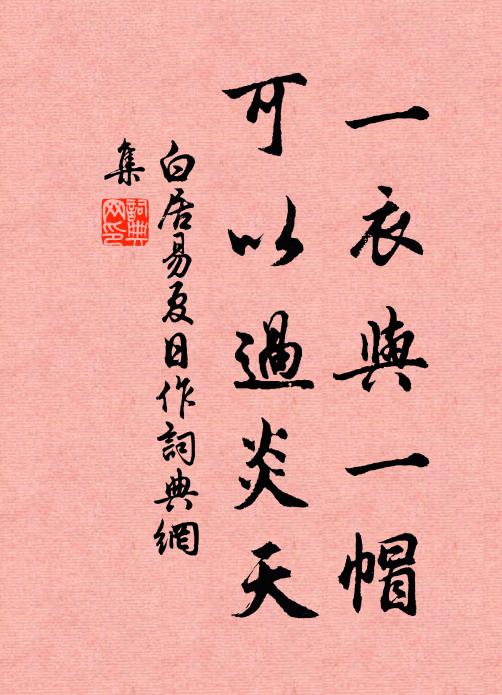 一衣與一帽
可以過炎天
白居易夏日作詞典網
集
詞典
网印